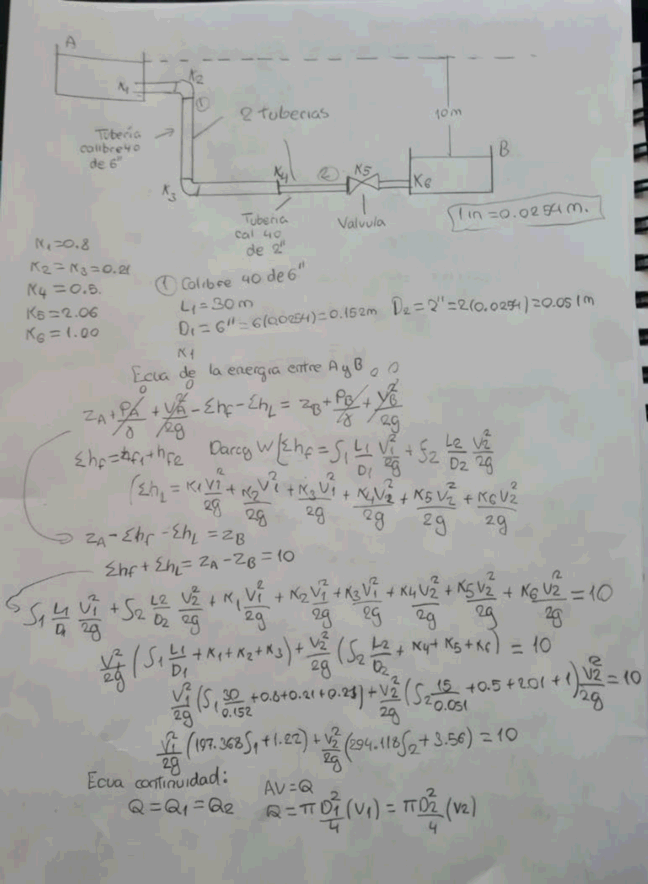 A
K1
K2
①
Tubería
calibre 40
de 6"
2 tuberías
10m
K3
K4
②
K5
K6
B
Tubería
cal 40
de 2"
Valvula
1 in = 0.0254 m.
K1 = 0.8
K2 = K3 = 0.21
K4 = 0.5
K5 = 2.06
K6 = 1.00
① Calibre 40 de 6"
L1 = 30 m
D1 = 6" = 6(0.0254) = 0.152m D2 = 2" = 2(0.0254) = 0.051m
K1
Ecua de la energia entre A y B
0 0 0 0
ZA + PA/γ + VA²/2g - Σhf - ΣhL = ZB + PB/γ + VB²/2g
Σhf = hf1 + hf2 Darcy W { Σhf = ʃ1 L1/D1 V1²/2g + ʃ2 L2/D2 V2²/2g
ΣhL = K1V1²/2g + K2V1²/2g + K3V1²/2g + K4V2²/2g + K5V2²/2g + K6V2²/2g
ZA - Σhf - ΣhL = ZB
Σhf + ΣhL = ZA - ZB = 10
ʃ1 L1/D1 V1²/2g + ʃ2 L2/D2 V2²/2g + K1V1²/2g + K2V1²/2g + K3V1²/2g + K4V2²/2g + K5V2²/2g + K6V2²/2g = 10
V1²/2g (ʃ1 L1/D1 + K1 + K2 + K3) + V2²/2g (ʃ2 L2/D2 + K4 + K5 + K6) = 10
V1²/2g (ʃ1 30/0.152 + 0.8 + 0.21 + 0.21) + V2²/2g (ʃ2 15/0.051 + 0.5 + 2.01 + 1) V2²/2g = 10
V1²/2g (197.368ʃ1 + 1.22) + V2²/2g (294.118ʃ2 + 3.56) = 10
Ecua continuidad: AV = Q
Q = Q1 = Q2 Q = πD1²/4 (V1) = πD2²/4 (V2)